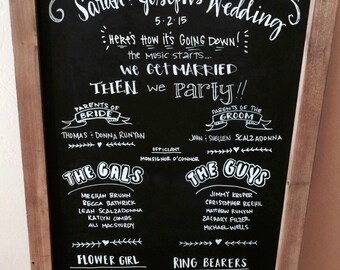 Sarah & Joseph's Wedding
5·2·15
HERE'S HOW IT'S GOING DOWN!
the MUSIC STARTS...
WE GET MARRIED
THEN WE PARTY!!
PARENTS OF BRIDE
PARENTS OF THE GROOM
THOMAS & DONNA RUNYAN
JOHN & SUELLEN SCALZADONNA
OFFICIANT
MONSIGNOR O'CONNOR
THE GALS
THE GUYS
MEGHAN BRYHAN
BECCA BATHRICK
LEAH SCALZADONNA
KATLYN COMBS
ALI MACSTURDY
JIMMY KROPER
CHRISTOPHER
MATTHEW RUNYAN
ZACHARY FILZER
MICHAEL WELLS
FLOWER GIRL
RING BEARERS